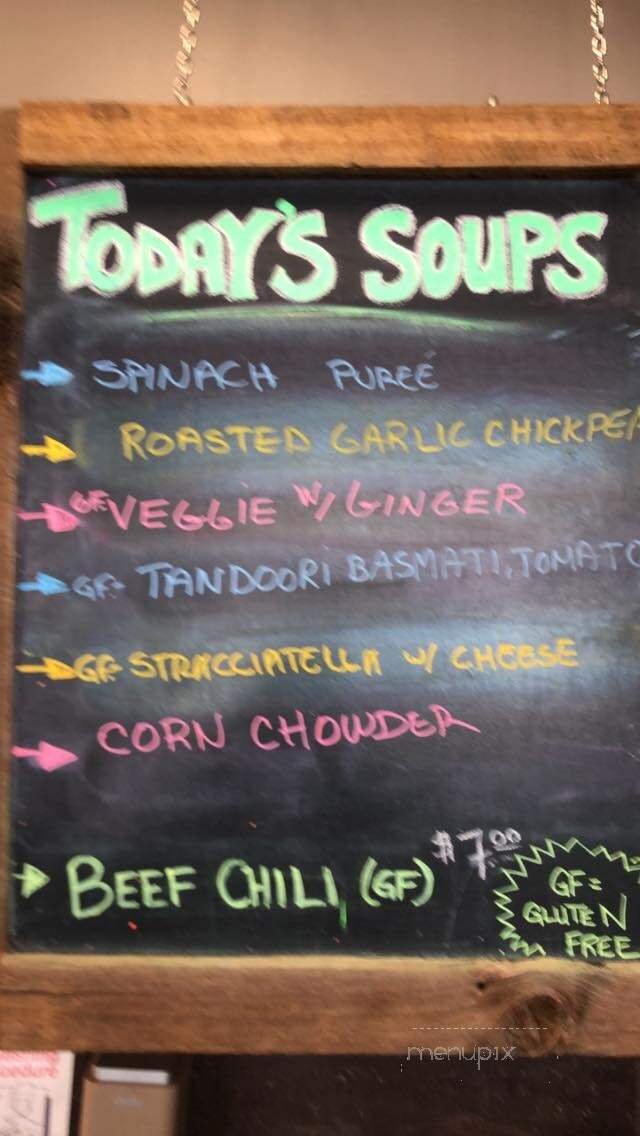 TODAY'S SOUPS
SPINACH PUREÉ
ROASTED GARLIC CHICKPEA
GF: VEGGIE W/ GINGER
GF: TANDOORI BASMATI, TOMATO
GF: STRACCIATELLA W/ CHEESE
CORN CHOWDER
$7.00
BEEF CHILI, (GF)
GF=
GLUTEN
FREE
menupix
ocedure